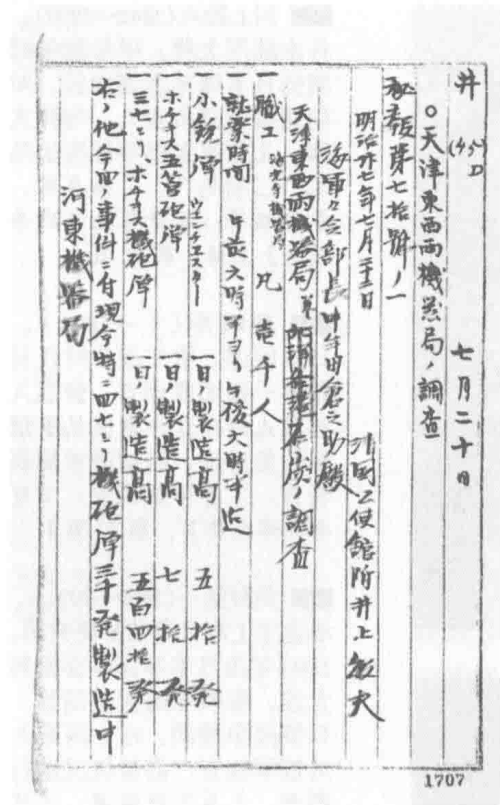 井
(45)
七月二十日
○天津東西両機器局ノ調査
秘報第七拾號ノ一
明治廿七年七月二十二日
清國公使館附井上敏夫
海軍々令部長中牟田倉之助殿
天津東西両機器局
ノ調査
一職工
凡壱千人
就業時間 午前六時半ヨリ午後六時半迄
一小銃弾 一日ノ製造高 五拾発
一ホチキス五管砲弾 一日ノ製造高 七拾発
一三七ミ、ホチキス機砲弾 一日ノ製造高 五百四拾発
右ノ他今回ノ事件ニ付現今特ニ四七ミリ機砲弾三千発製造中
河東機器局
1707